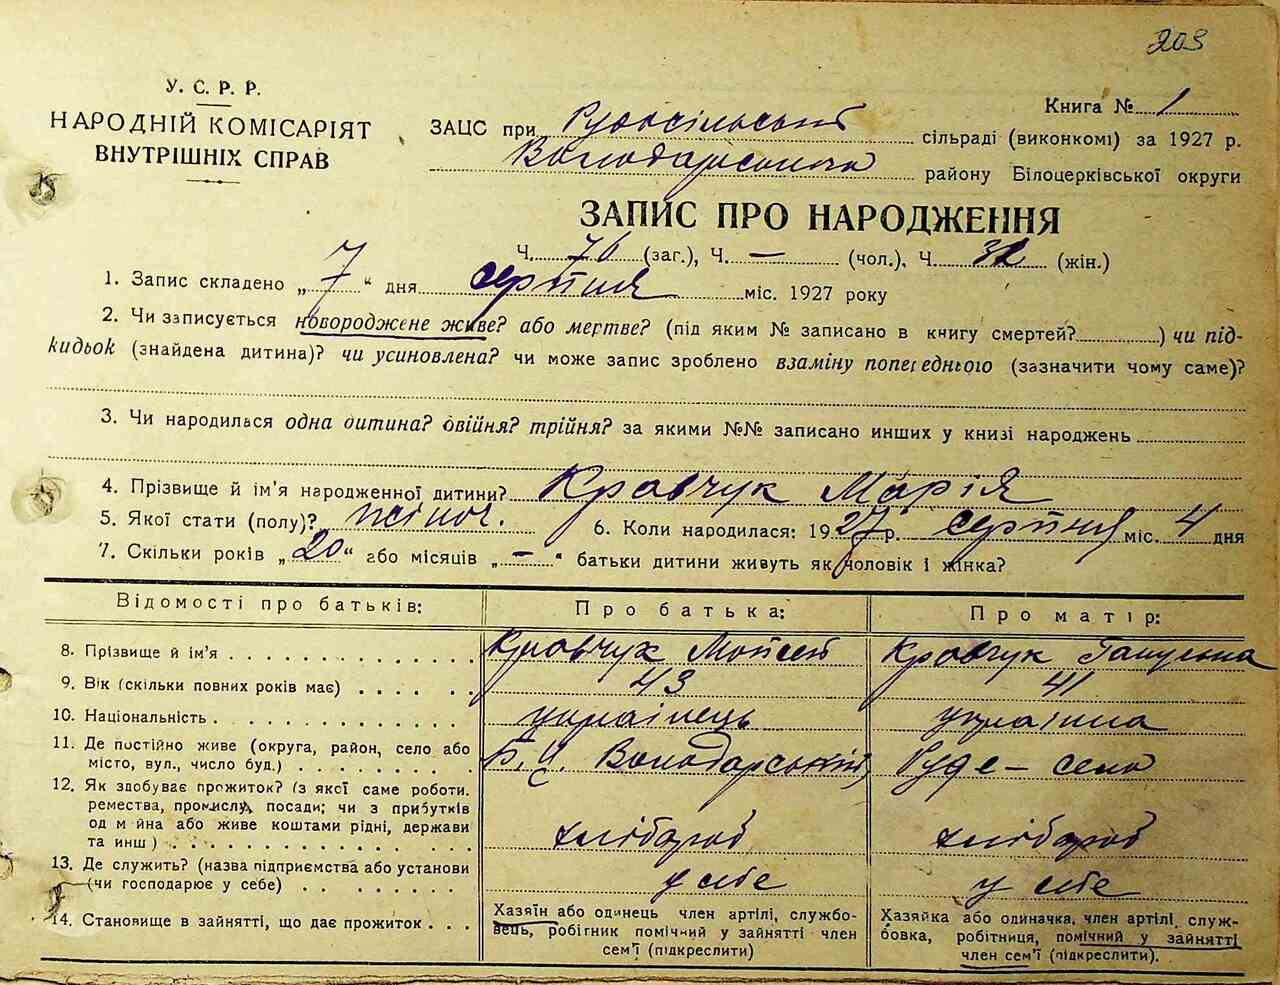 203
У. С. Р. Р.
НАРОДНІЙ КОМІСАРІЯТ
ВНУТРІШНІХ СПРАВ
Книга № 1
ЗАЦС при Рудосільській сільраді (виконкомі) за 1927 р.
Володарського району Білоцерківської округи
ЗАПИС ПРО НАРОДЖЕННЯ
Ч. 76 (заг.), Ч. — (чол.), Ч. (жін.)
1. Запис складено „ 7 “ дня серпня міс. 1927 року
2. Чи записується новороджене живе? або мертве? (під яким № записано в книгу смертей? ) чи під-
кидьок (знайдена дитина)? чи усиновлена? чи може запис зроблено взаміну попереднього (зазначити чому саме)?
3. Чи народилься одна дитина? двійня? трійня? за якими №№ записано инших у книзі народжень
4. Прізвище й ім'я народженної дитини? Кравчук Марія
5. Якої стати (полу)? жіноч. 6. Коли народилася: 1927 р. серпня міс. 4 дня
7. Скільки років „ 20 “ або місяців „ — “ батьки дитини живуть як чоловік і жінка?
Відомості про батьків: Про батька: Про матір:
8. Прізвище й ім'я Кравчук Мойсей Кравчук
9. Вік (скільки повних років має) 43 41
10. Національність українець українка
11. Де постійно живе (округа, район, село або
місто, вул., число буд.) Б. Ц. Володарський, Руде-село
12. Як здобуває прожиток? (з якої саме роботи.
ремества, промислу, посади; чи з прибутків
од майна або живе коштами рідні, держави
та инш) хлібороб хлібороб
13. Де служить? (назва підприємства або установи
(чи господарює у себе) у себе у себе
14. Становище в зайнятті, що дає прожиток
Хазяїн або одинець член артілі, службо-
вець, робітник помічний у зайнятті член
сем'ї (підкреслити)
Хазяйка або одиначка, член артілі, служ-
бовка, робітниця, помічний у зайнятті
член сем'ї (підкреслити).